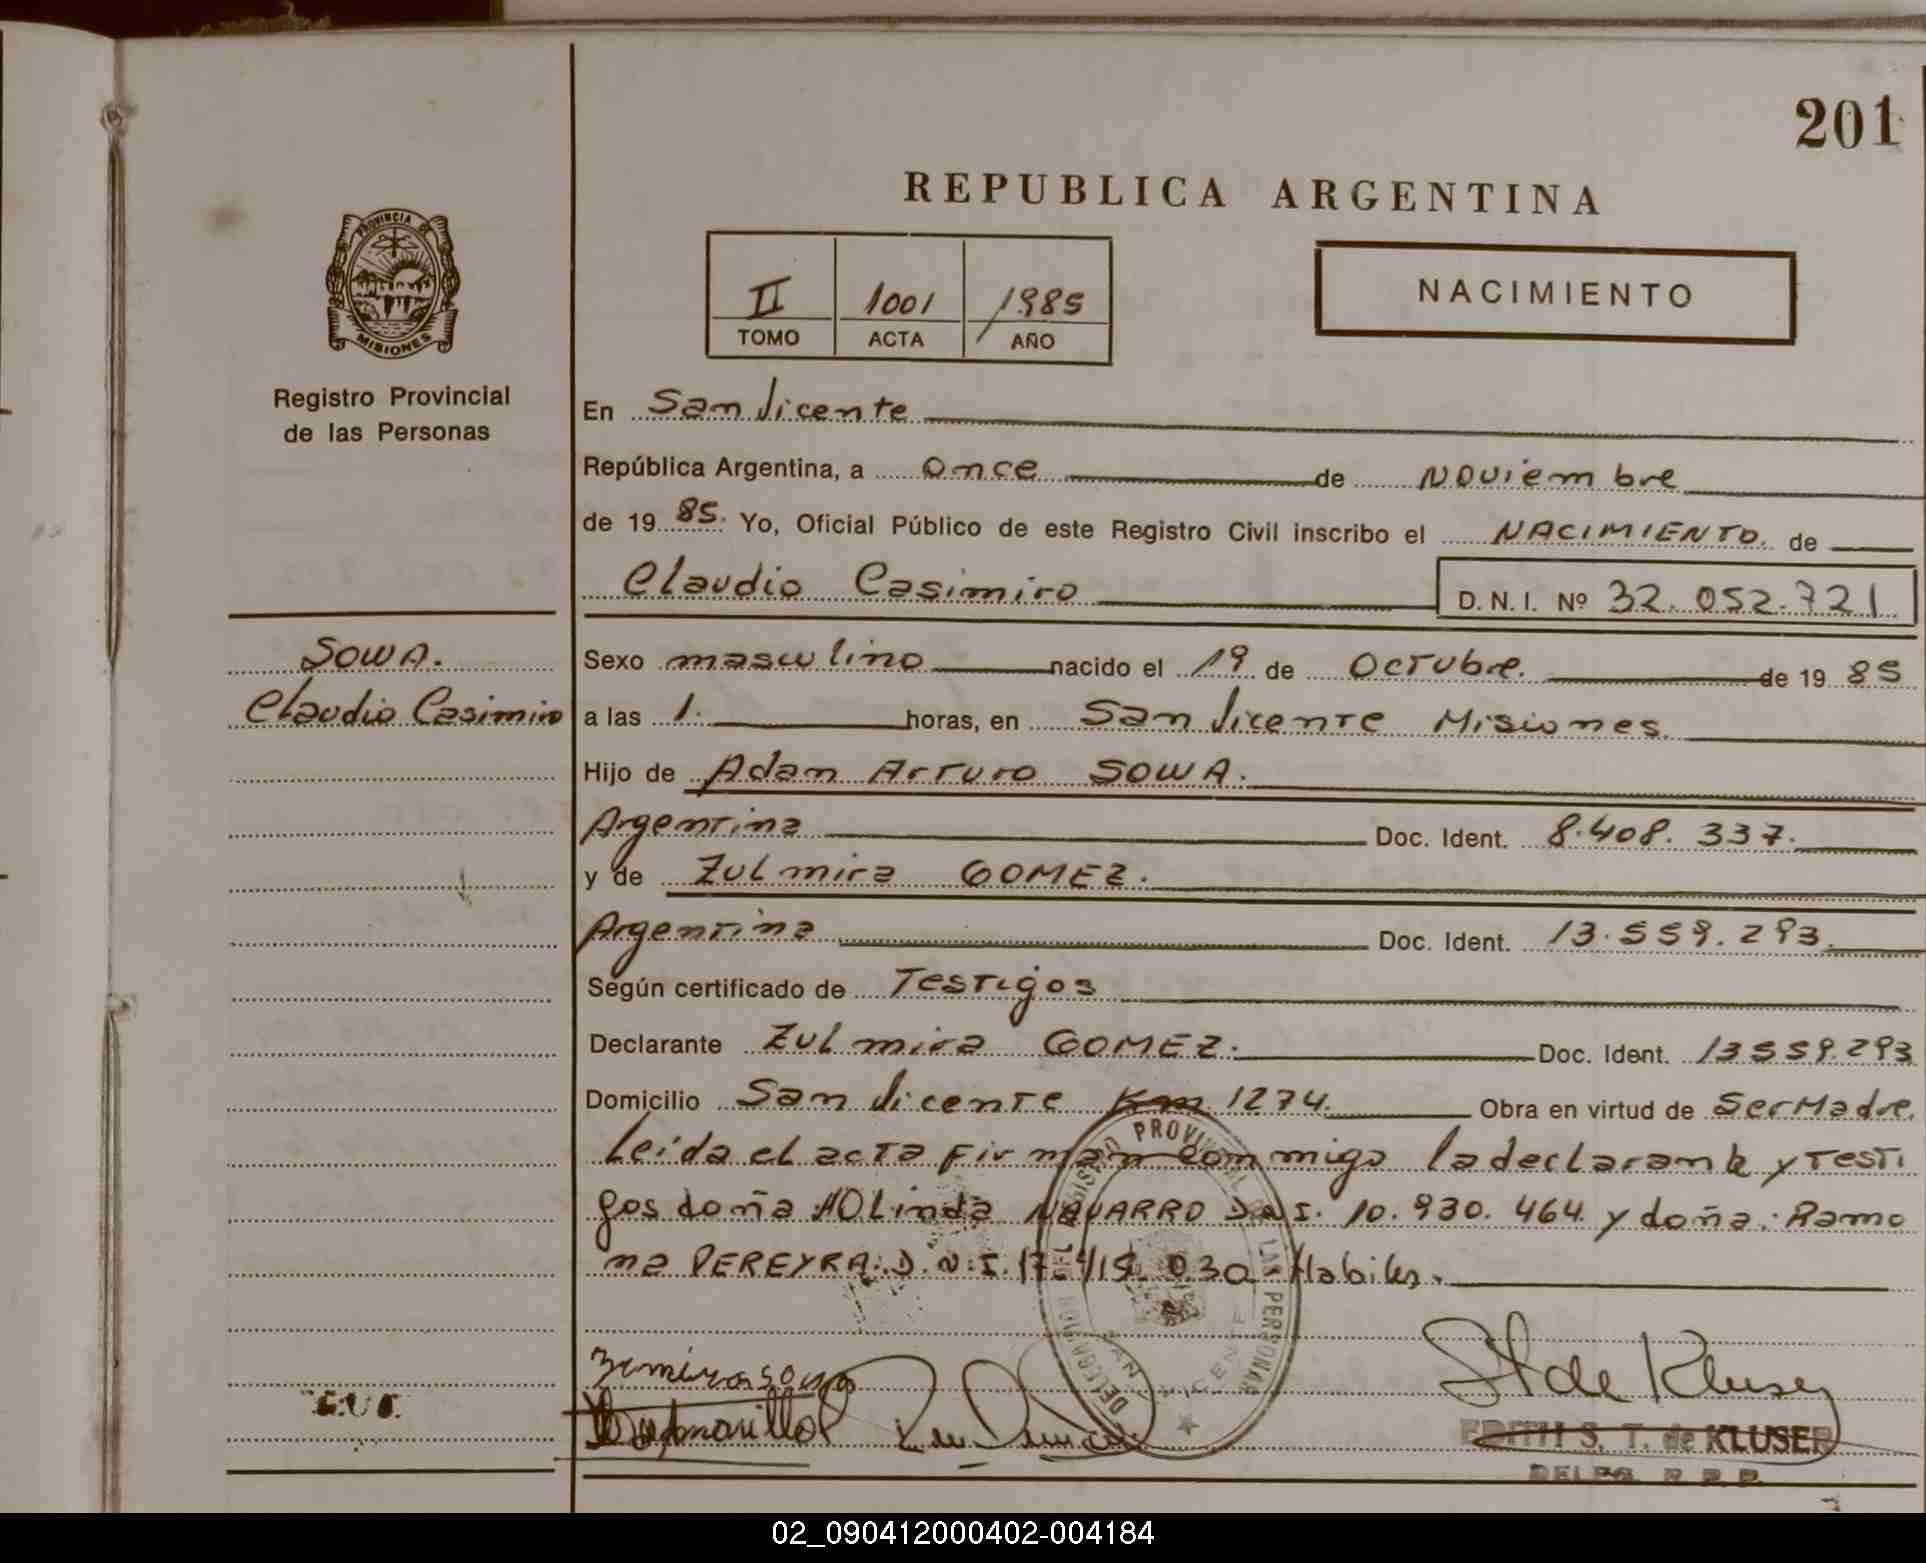 201
REPUBLICA ARGENTINA
PROVINCIA DE
MISIONES
Registro Provincial
de las Personas
II 1001 1985
TOMO ACTA AÑO
NACIMIENTO
En San Vicente
República Argentina, a once de noviembre
de 19 85. Yo, Oficial Público de este Registro Civil inscribo el NACIMIENTO de
Claudio Casimiro D. N. I. Nº 32.052.721
SOWA.
Claudio Casimiro
Sexo masculino nacido el 19 de octubre. de 19 85
a las 1. horas, en San Vicente Misiones.
Hijo de Adan Arturo SOWA.
Argentina Doc. Ident. 8.408.337.
y de Zulmira GOMEZ.
Argentina Doc. Ident. 13.559.293.
Según certificado de Testigos
Declarante Zulmira GOMEZ. Doc. Ident. 13559.293
Domicilio San Vicente Km 1274. Obra en virtud de Ser Madre.
Leida el acta firman conmigo la declarante y testi
gos doña Olinda NAVARRO D.N.I. 10.930.464 y doña: Ramo
na PEREYRA: D.N.I. 17.415.030 Habiles.
DELEGACION DEL REGISTRO PROVINCIAL DE LAS PERSONAS
SAN VICENTE
St de Kluser
EDITH S. T. de KLUSER
DELEG. R. P. P.
02_090412000402-004184